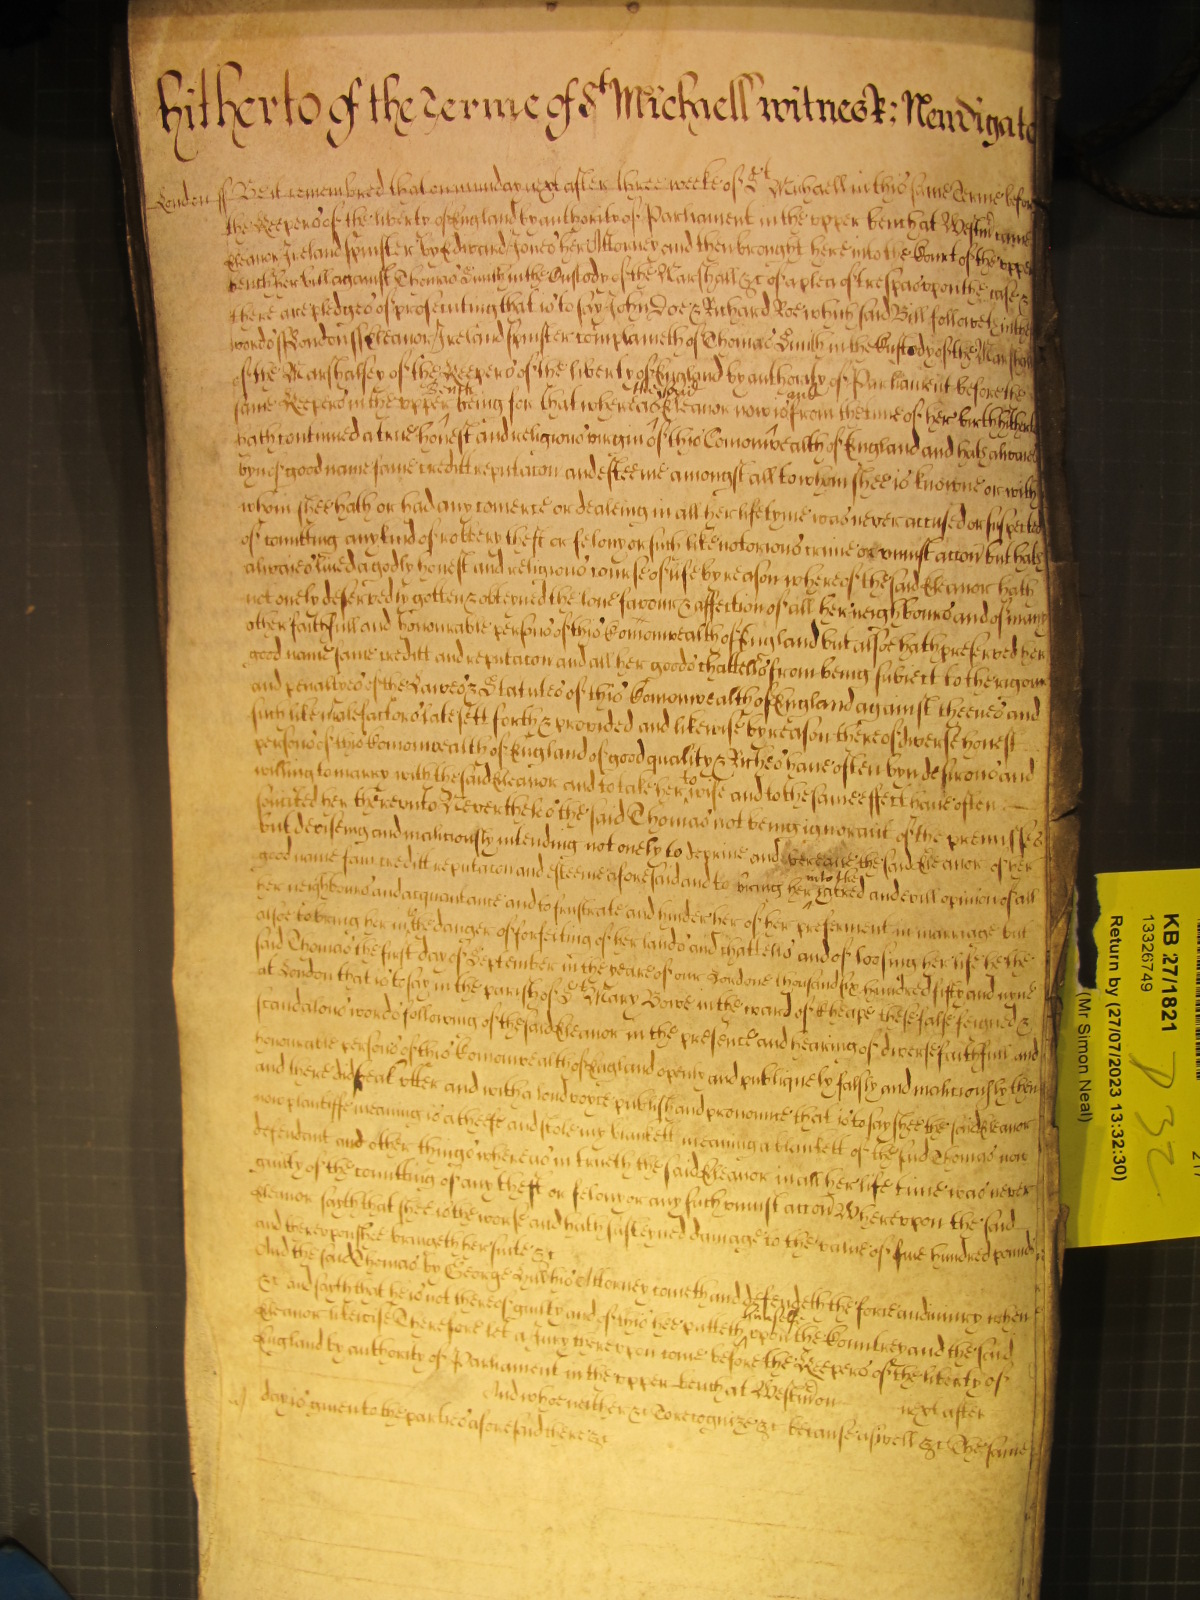 Hitherto of the Terme of St Michaell witness: Newdigate
London ss Be it remembred that on munday next after three weeke of St Michaell in this same Terme before
the Keepers of the liberty of England by authority of Parliament in the upper bench at Westmr came
Eleanor Ireland spinster by Edward Jones her Attorney and then brought here into the Court of the upper
bench her bill against Thomas Smith in the Custody of the Marshall &c of a plea of trespas upon the case &
there are pledges of prosecuting that is to say John Doe & Richard Roe which said Bill followeth in these
words ss London ss Eleanor Ireland spinster complaineth of Thomas Smith in the Custody of the Marshall
of the Marshalsey of the Keepers of the liberty of England by authority of Parliament before the
same Keepers in the upper Bench being for that whereas the said Eleanor now is and from the time of her birth hitherto
hath continued a true honest and religious virgin of this Comonwealth of England and hath alwaies
byn of good name fame creditt reputacon and esteeme amongst all to whom shee is knowne or with
whom shee hath or had any comerce or dealeing in all her life tyme was never accused or suspected
of comitting any kind of robbery theft or felony or such like notorious crime or uniust accon but hath
alwaies lived a godly honest and religious course of life by reason whereof the said Eleanor hath
not onely deservedly gotten & obteyned the love favour & affection of all her neighbours and of many
other faithfull and honourable persons of this Comonwealth of England but alsoe hath preserved her
good name fame creditt and reputacon and all her goods chattells from being subiect to the rigour
and penaltyes of the Lawes & Statutes of this Comonwealth of England against theeves and
such like malefactors late sett forth & provided and likewise by reason thereof diverse honest
persons of this Comonwealth of England of good quality & Riches have often byn desirous and
willing to marry with the said Eleanor and to take her to wife and to the same effect have often
solicited her thereunto Neverthelesse the said Thomas not being ignorant of the premisses
but deviseing and maliciously intending not onely to deprive and bereave the said Eleanor of her
good name fame creditt reputacon and esteeme aforesaid and to bring her into the hatred and evill opinion of all
her neighbours and acquantance and to frustrate and hinder her of her preferment in marriage but
alsoe to bring her in the danger of forfeiting of her lands and chattells and of loosing her life he the
said Thomas the first day of September in the yeare of our Lord one thousand six hundred fifty and nyne
at London that is to say in the parish of St Mary Bowe in the ward of Cheape these false feigned &
scandalous words following of the said Eleanor in the presence and hearing of diverse faithfull and
honourable persons of this Comonwealth of England openly and publiquely falsly and maliciously then
and there did speak utter and with a loud voyce publish and pronounce that is to say shee the said Eleanor
now plantiffe meaning is a theife and stole my blankett meaning a blankett of the said Thomas now
defendant and other things whereas in trueth the said Eleanor in all her life time was never
guilty of the comitting of any theft or felony or any such uniust accon Whereupon the said
Eleanor sayth that shee is the worse and hath susteyned damage to the value of five hundred pounds
and thereupon shee bringeth her suite &c
And the said Thomas by George Hill his Attorney cometh and defendeth the force and iniury when
&c and sayth that he is not thereof guilty and of this hee putteth himselfe upon the Countrey and the said
Eleanor likewise Therefore let a Jury thereupon come before the Keepers of the liberty of
England by authority of Parliament in the upper bench at Westmr on next after
And who neither &c To recognize &c because aswell &c The same
day is given to the parties aforesaid there &c
KB 27/1821
13326749
Return by (27/07/2023 13:32:30)
(Mr Simon Neal)
D 32
217